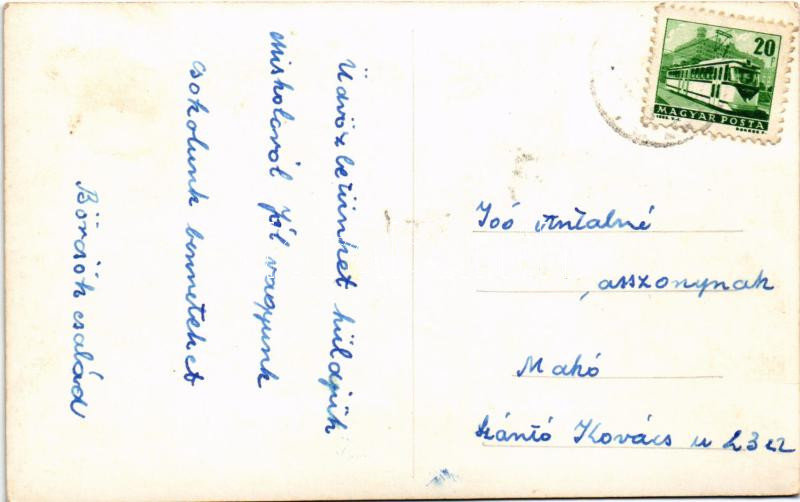 Üdvözletünket küldjük
Miskolcról Jól vagyunk
csokolunk benneteket
Börcsök család
20 f
MAGYAR POSTA
Joó Antalné
asszonynak
Makó
Szántó Kovács u